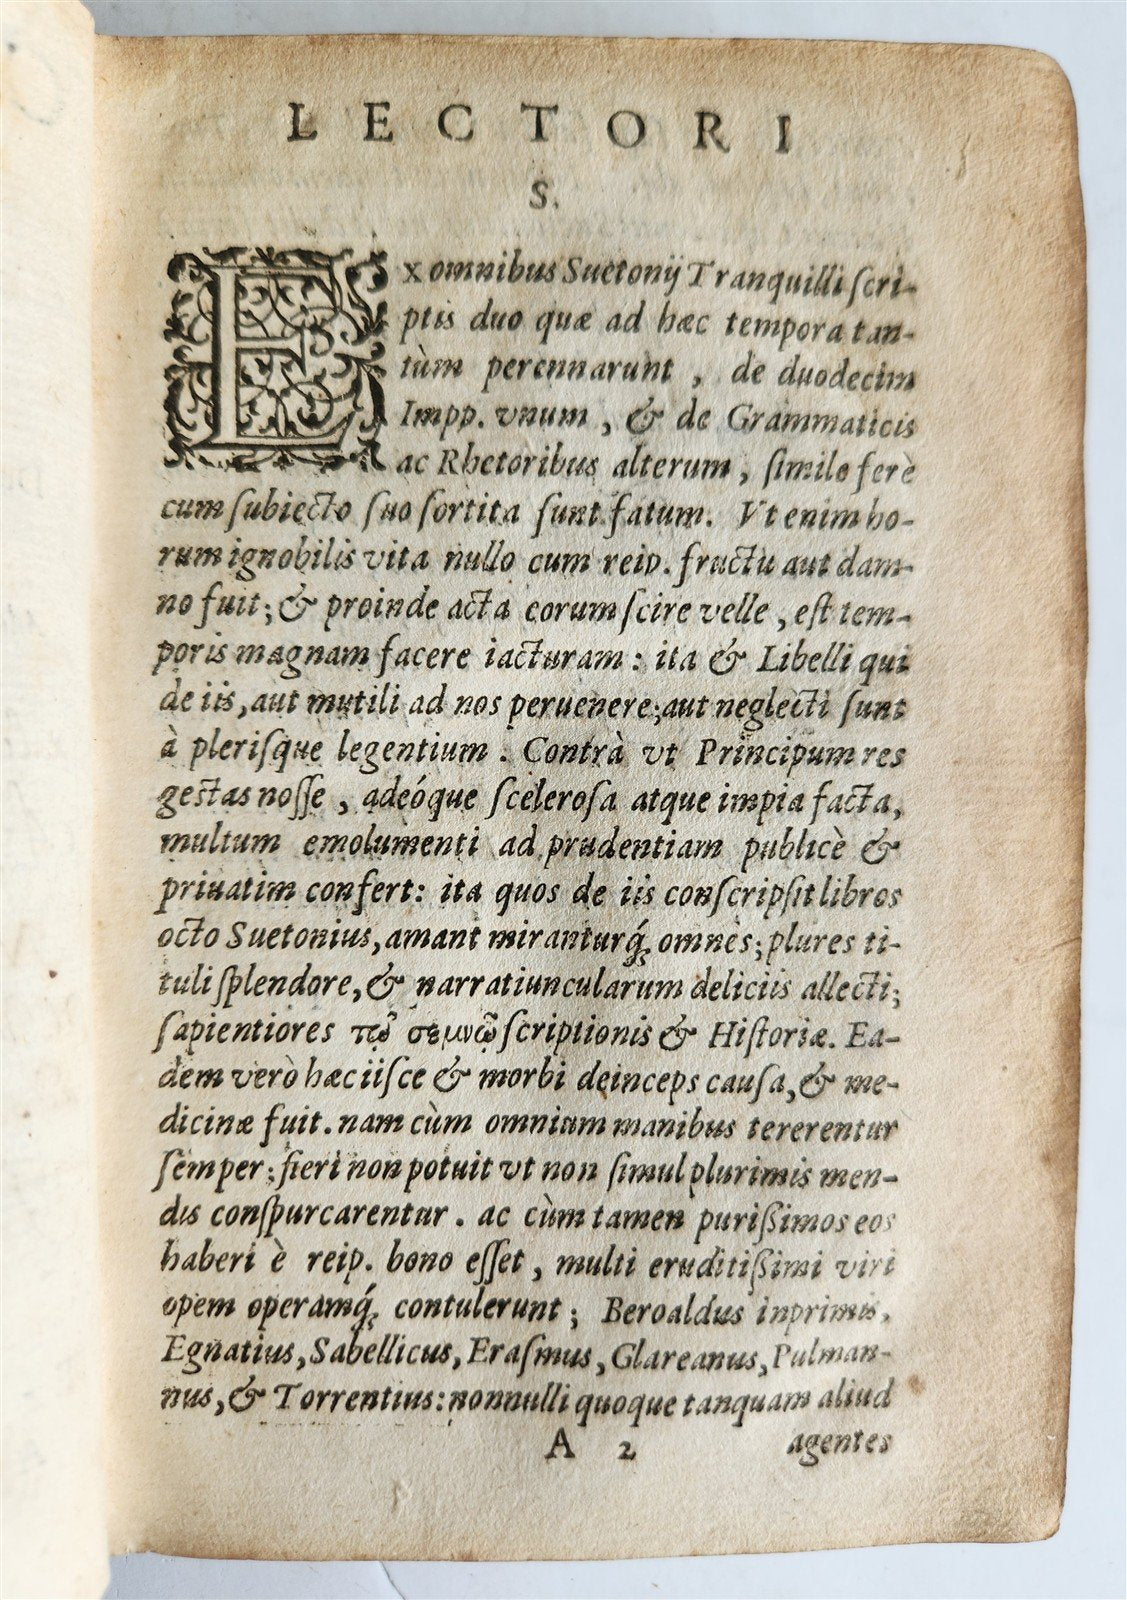 LECTORI
S.
EX omnibus Suetonij Tranquilli scri-
ptis duo quæ ad hæc tempora tan-
tùm perennarunt, de duodecim
Impp. vnum, & de Grammaticis
ac Rhetoribus alterum, simile ferè
cum subiecto suo sortita sunt fatum. Vt enim ho-
rum ignobilis vita nullo cum reip. fructu aut dam-
no fuit; & proinde acta eorum scire velle, est tem-
poris magnam facere iacturam: ita & Libelli qui
de iis, aut mutili ad nos peruenere; aut neglecti sunt
à plerisque legentium. Contrà vt Principum res
gestas nosse, adeóque scelerosa atque impia facta,
multum emolumenti ad prudentiam publicè &
priuatim confert: ita quos de iis conscripsit libros
octo Suetonius, amant miranturq́; omnes; plures ti-
tuli splendore, & narratiuncularum deliciis allecti;
sapientiores τῷ σεμνῷ scriptionis & Historiæ. Ea-
dem verò hæc iisce & morbi deinceps causa, & me-
dicinæ fuit. nam cùm omnium manibus tererentur
semper; fieri non potuit vt non simul plurimis men-
dis conspurcarentur. ac cùm tamen purißimos eos
haberi è reip. bono esset, multi eruditißimi viri
opem operamq́; contulerunt; Beroaldus inprimis,
Egnatius, Sabellicus, Erasmus, Glareanus, Pulman-
nus, & Torrentius: nonnulli quoque tanquam aliud
A 2 agentes